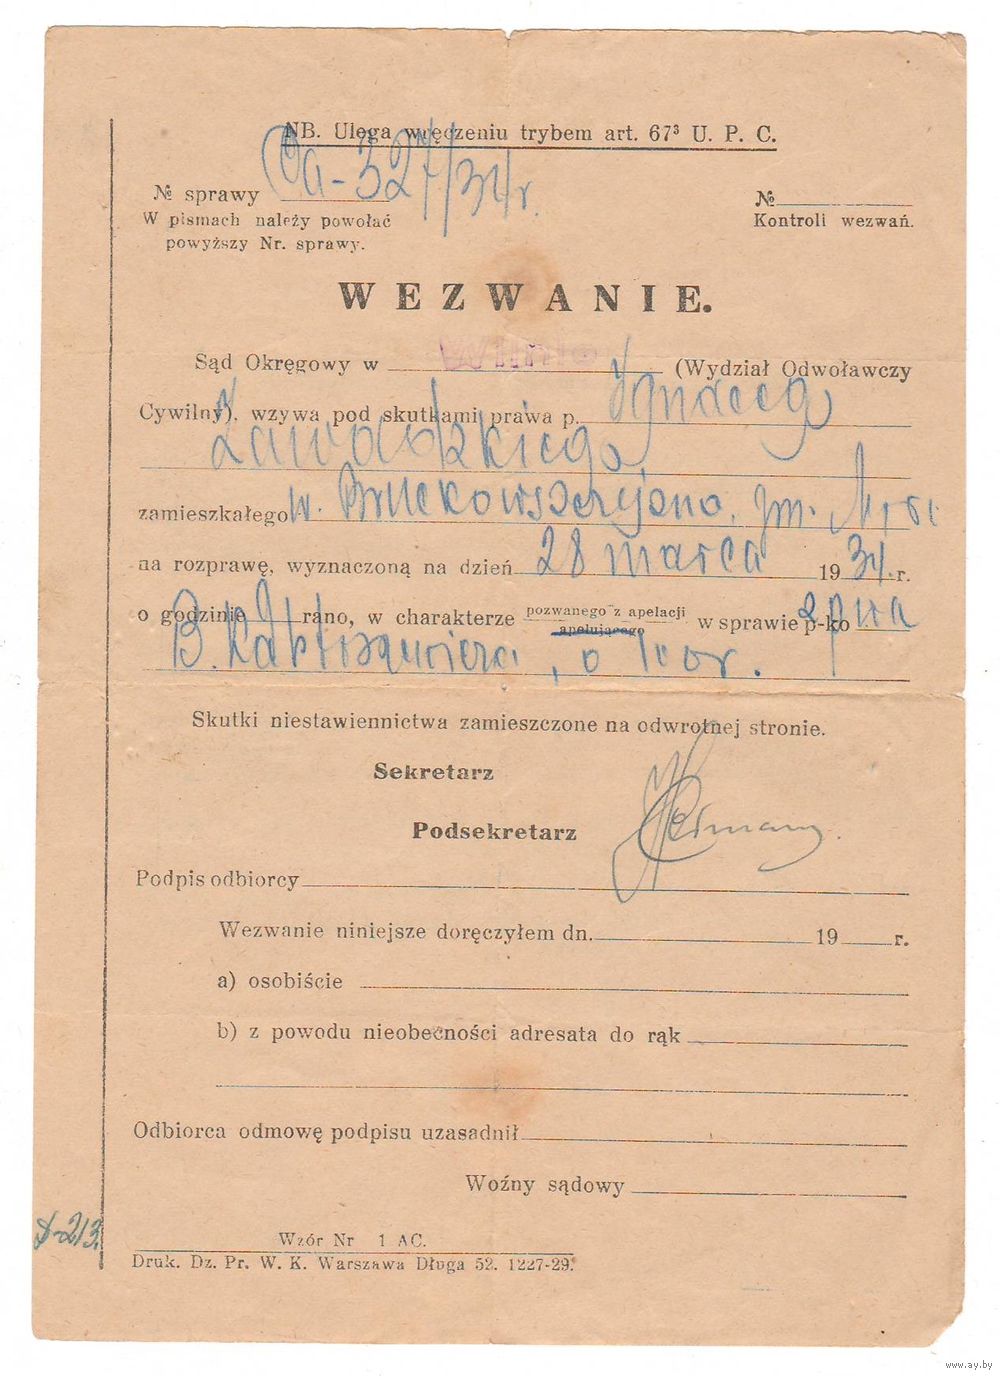 NB. Ulega wręczeniu trybem art. 67³ U. P. C.
№ sprawy Ca-327/34 r.
№
W pismach należy powołać
powyższy Nr. sprawy.
Kontroli wezwań.
WEZWANIE.
Sąd Okręgowy w Wilnie (Wydział Odwoławczy
Cywilny), wzywa pod skutkami prawa p. Ignacego
Zawadzkiego,
zamieszkałego w. gm.
na rozprawę, wyznaczoną na dzień 28 marca 1934 r.
o godzinie 9 rano, w charakterze pozwanego z apelacji
apelującego
w sprawie p-ko
B. o
Skutki niestawiennictwa zamieszczone na odwrotnej stronie.
Sekretarz
Podsekretarz
Podpis odbiorcy
Wezwanie niniejsze doręczyłem dn. 19 r.
a) osobiście
b) z powodu nieobecności adresata do rąk
Odbiorca odmowę podpisu uzasadnił
Woźny sądowy
Wzór Nr 1 AC.
Druk. Dz. Pr. W. K. Warszawa Długa 52. 1227-29.
www.ay.by